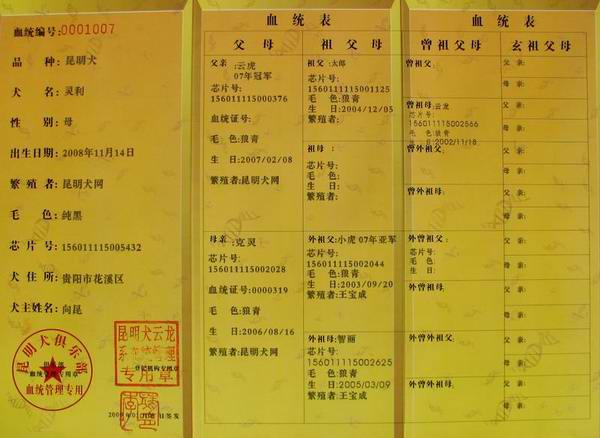 血统编号:0001007
品 种: 昆明犬
犬 名: 灵利
性 别: 母
出生日期: 2008年11月14日
繁殖者: 昆明犬网
毛 色: 纯黑
芯片号: 156011115005432
犬住所: 贵阳市花溪区
犬主姓名: 向昆
昆明犬俱乐部
血统管理专用章
血统管理专用
昆明犬云龙
登记机构专用章
专用章
血统表
父母
祖父母
父亲:云虎
07年冠军
芯片号:
156011115000376
血统证号:
毛 色:狼青
生 日:2007/02/08
繁殖者:昆明犬网
母亲:克灵
芯片号:
156011115002028
血统证号:0000319
毛 色:狼青
生 日:2006/08/16
繁殖者:昆明犬网
祖父:太郎
芯片号:
156011115001125
毛 色:狼青
生 日:2004/12/05
繁殖者:
祖母:
芯片号:
毛 色:
生 日:
繁殖者:
外祖父:小虎07年亚军
芯片号:
156011115002044
毛 色:狼青
生 日:2003/09/20
繁殖者:王宝成
外祖母:智丽
芯片号:
156011115002625
毛 色:狼青
生 日:2005/03/09
繁殖者:王宝成
血统表
曾祖父母
玄祖父母
曾祖父:
父亲:
母亲:
曾祖母:云龙
芯片号:
156011115002566
毛 色:狼青
生 日:2002/11/18
父亲:
母亲:
曾外祖父:
父亲:
母亲:
曾外祖母:
父亲:
母亲:
外曾祖父:
芯片号:
毛 色:
生 日:
父亲:
母亲:
外曾祖母:
父亲:
母亲:
外曾外祖父:
父亲:
母亲:
外曾外祖母:
父亲:
母亲: